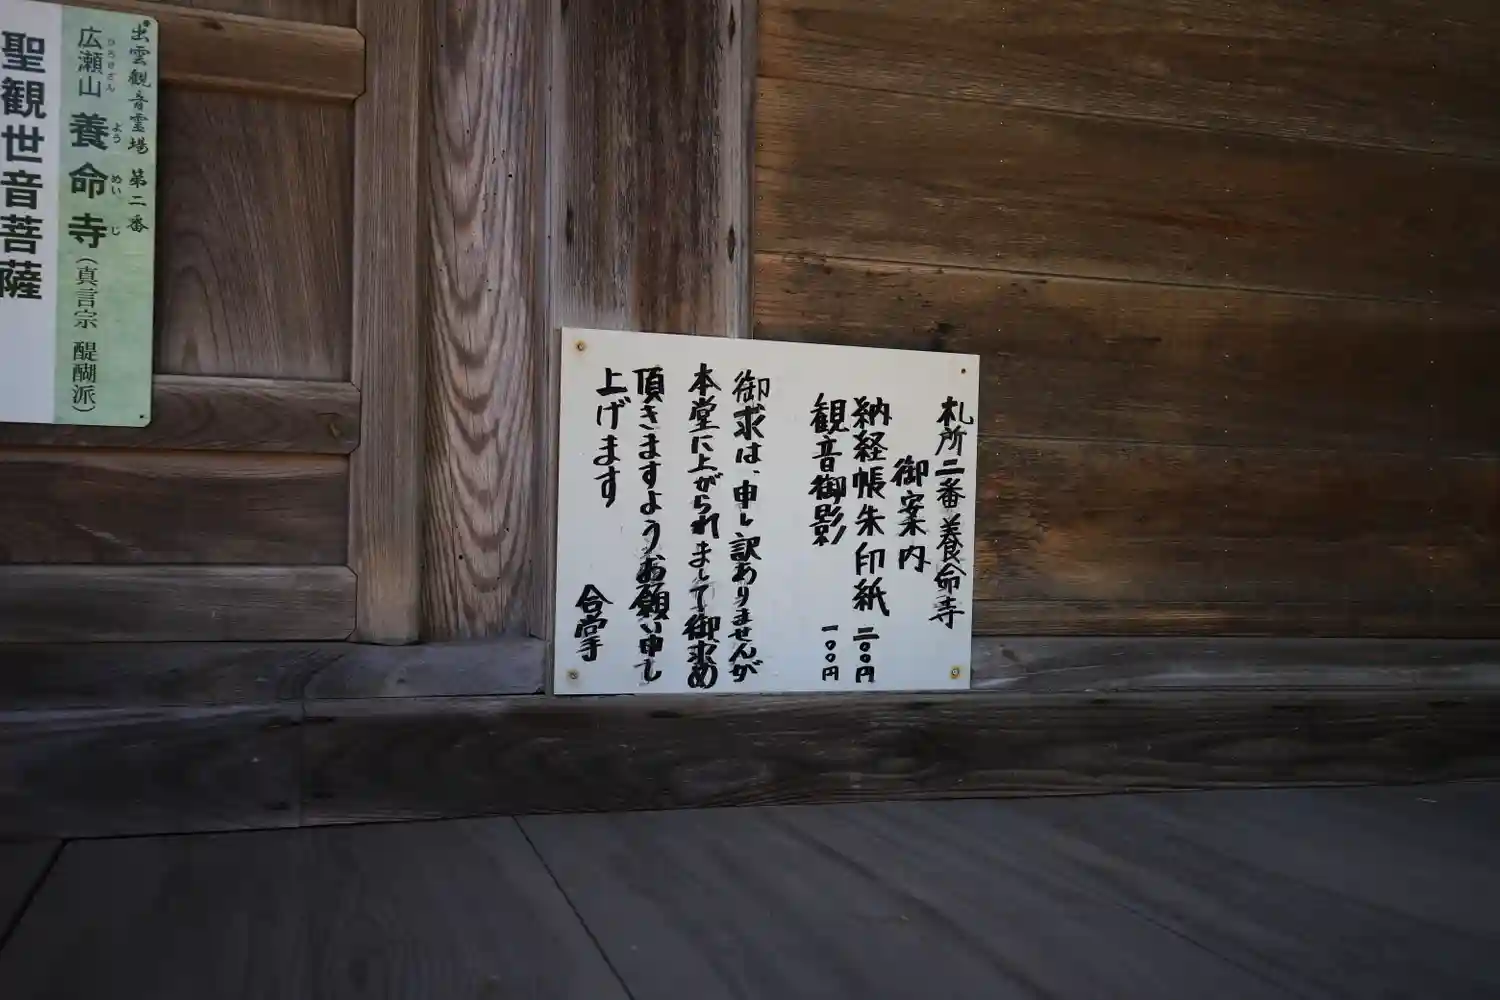 札所二番養命寺
御案内
納経帳朱印紙 二〇〇円
観音御影 一〇〇円
御求は、申し訳ありませんが
本堂に上がられまして御求め
頂きますようお願い申し
上げます 合掌
出雲観音霊場 第二番
広瀬山 養命寺(真言宗 醍醐派)
ひろせざん よう めい じ
聖観世音菩薩